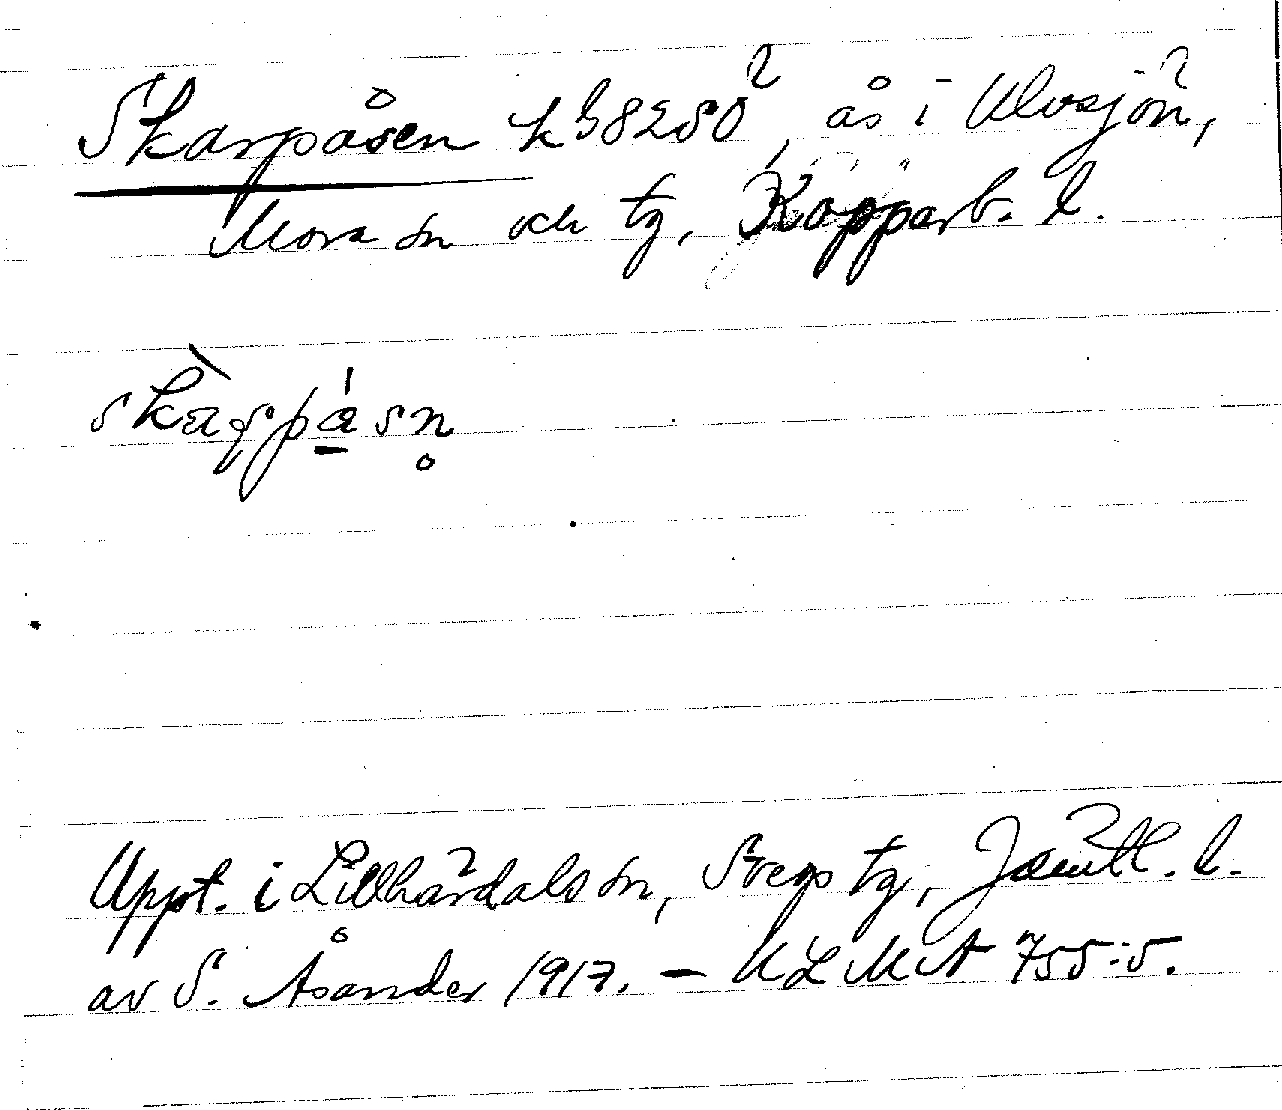 Skarpåsen k 38280, ås i Ulvsjön,
Mora sn och tg, Kopparb. l.
skarpåsn̥
Uppt. i Lillhärdals sn, Svegs tg, Jämtl. l.
av S. Åsander 1917. – ULMA 755:5.